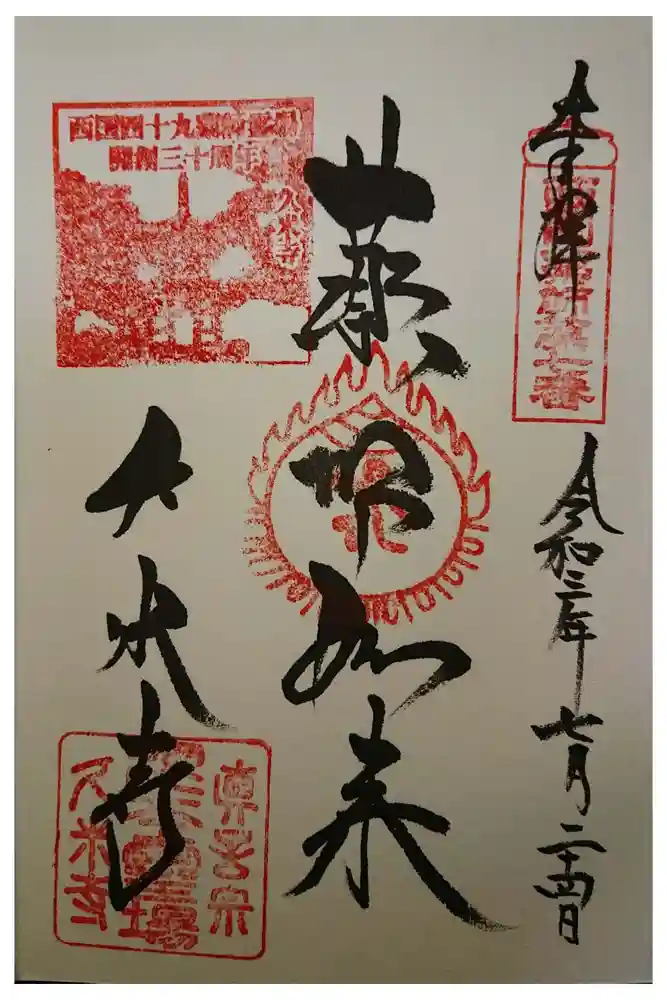 奉拝
西国薬師第七番
令和三年七月二十四日
薬師如来
西国四十九薬師霊場
開創三十周年
久米寺
久米寺
真言宗
久米寺